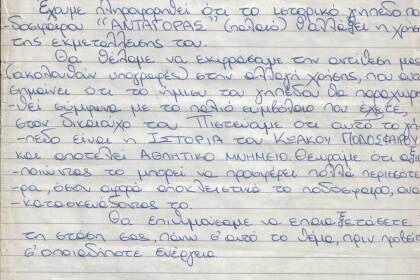 Έχουμε πληροφορηθεί ότι το ιστορικό γήπεδο πο-
-δοσφαίρου "ΑΝΤΑΓΟΡΑΣ" (παλαιό) θ' αλλάξει η χρήσ
της εκμετάλλευσης του.
Θα θέλαμε να εκφράσουμε την αντίθεσή μας
(ακολουθούν υπογραφές) στην αλλαγή χρήσης, που αυτό
σημαίνει ότι το ήμισυ του γηπέδου θα παραχωρη-
-θεί σύμφωνα με το παλιό συμβόλαιο που έχετε,
στον δικαιούχο του. Πιστεύουμε ότι αυτό το γή-
-πεδο είναι η ΙΣΤΟΡΙΑ του ΚΩΑΚΟΥ ΠΟΔΟΣΦΑΙΡΟΥ
και αποτελεί ΑΘΛΗΤΙΚΟ ΜΝΗΜΕΙΟ. Θεωρούμε ότι αξιο-
-ποιώντας το μπορεί να προσφέρει πολλά περισσότε-
-ρα, όσον αφορά αποκλειστικά το ποδόσφαιρο, ανα-
-κατασκευάζοντας το.
Θα επιθυμούσαμε να επανεξετάσετε
τη στάση σας, πάνω σ'αυτό το θέμα, πριν προβείτε
σ'οποιαδήποτε ενέργεια